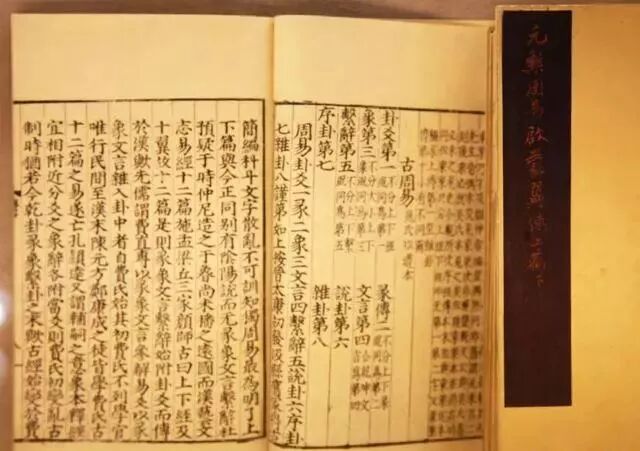 元槧周易啟蒙翼傳上篇下
古周易
卦爻第一 不分上下經
彖傳二
象第三 不分大小上下
文言第四
繫辭第五 不分上下
說卦第六
序卦第七
雜卦第八
周易卦爻一彖二象三文言四繫辭五說卦六序卦
七雜卦八謹第如上按晉太康初發汲縣
簡編科斗文字散亂不可訓知獨周易最爲明了上
下篇與今正同別有陰陽說而无彖象文言繫辭杜
預疑于時仲尼造之于魯尚未播之遠國而漢藝文
志易經十二篇施孟梁丘三家顔師古曰上下經及
十翼故十二篇是則彖象文言繫辭始附卦爻而傳
於漢歟先儒謂費直專以彖象文言參解易爻以彖
象文言雜入卦中者自費氏始其初費氏不列學官
唯行民間至漢末陳元方鄭康成之徒皆學費氏古
十二篇之易遂亡孔穎達又謂輔嗣之意象本釋經
宜相附近分爻之象辭各附當爻則費氏初變亂古
制時猶若今乾卦彖象繫卦之末歟古經始變於費